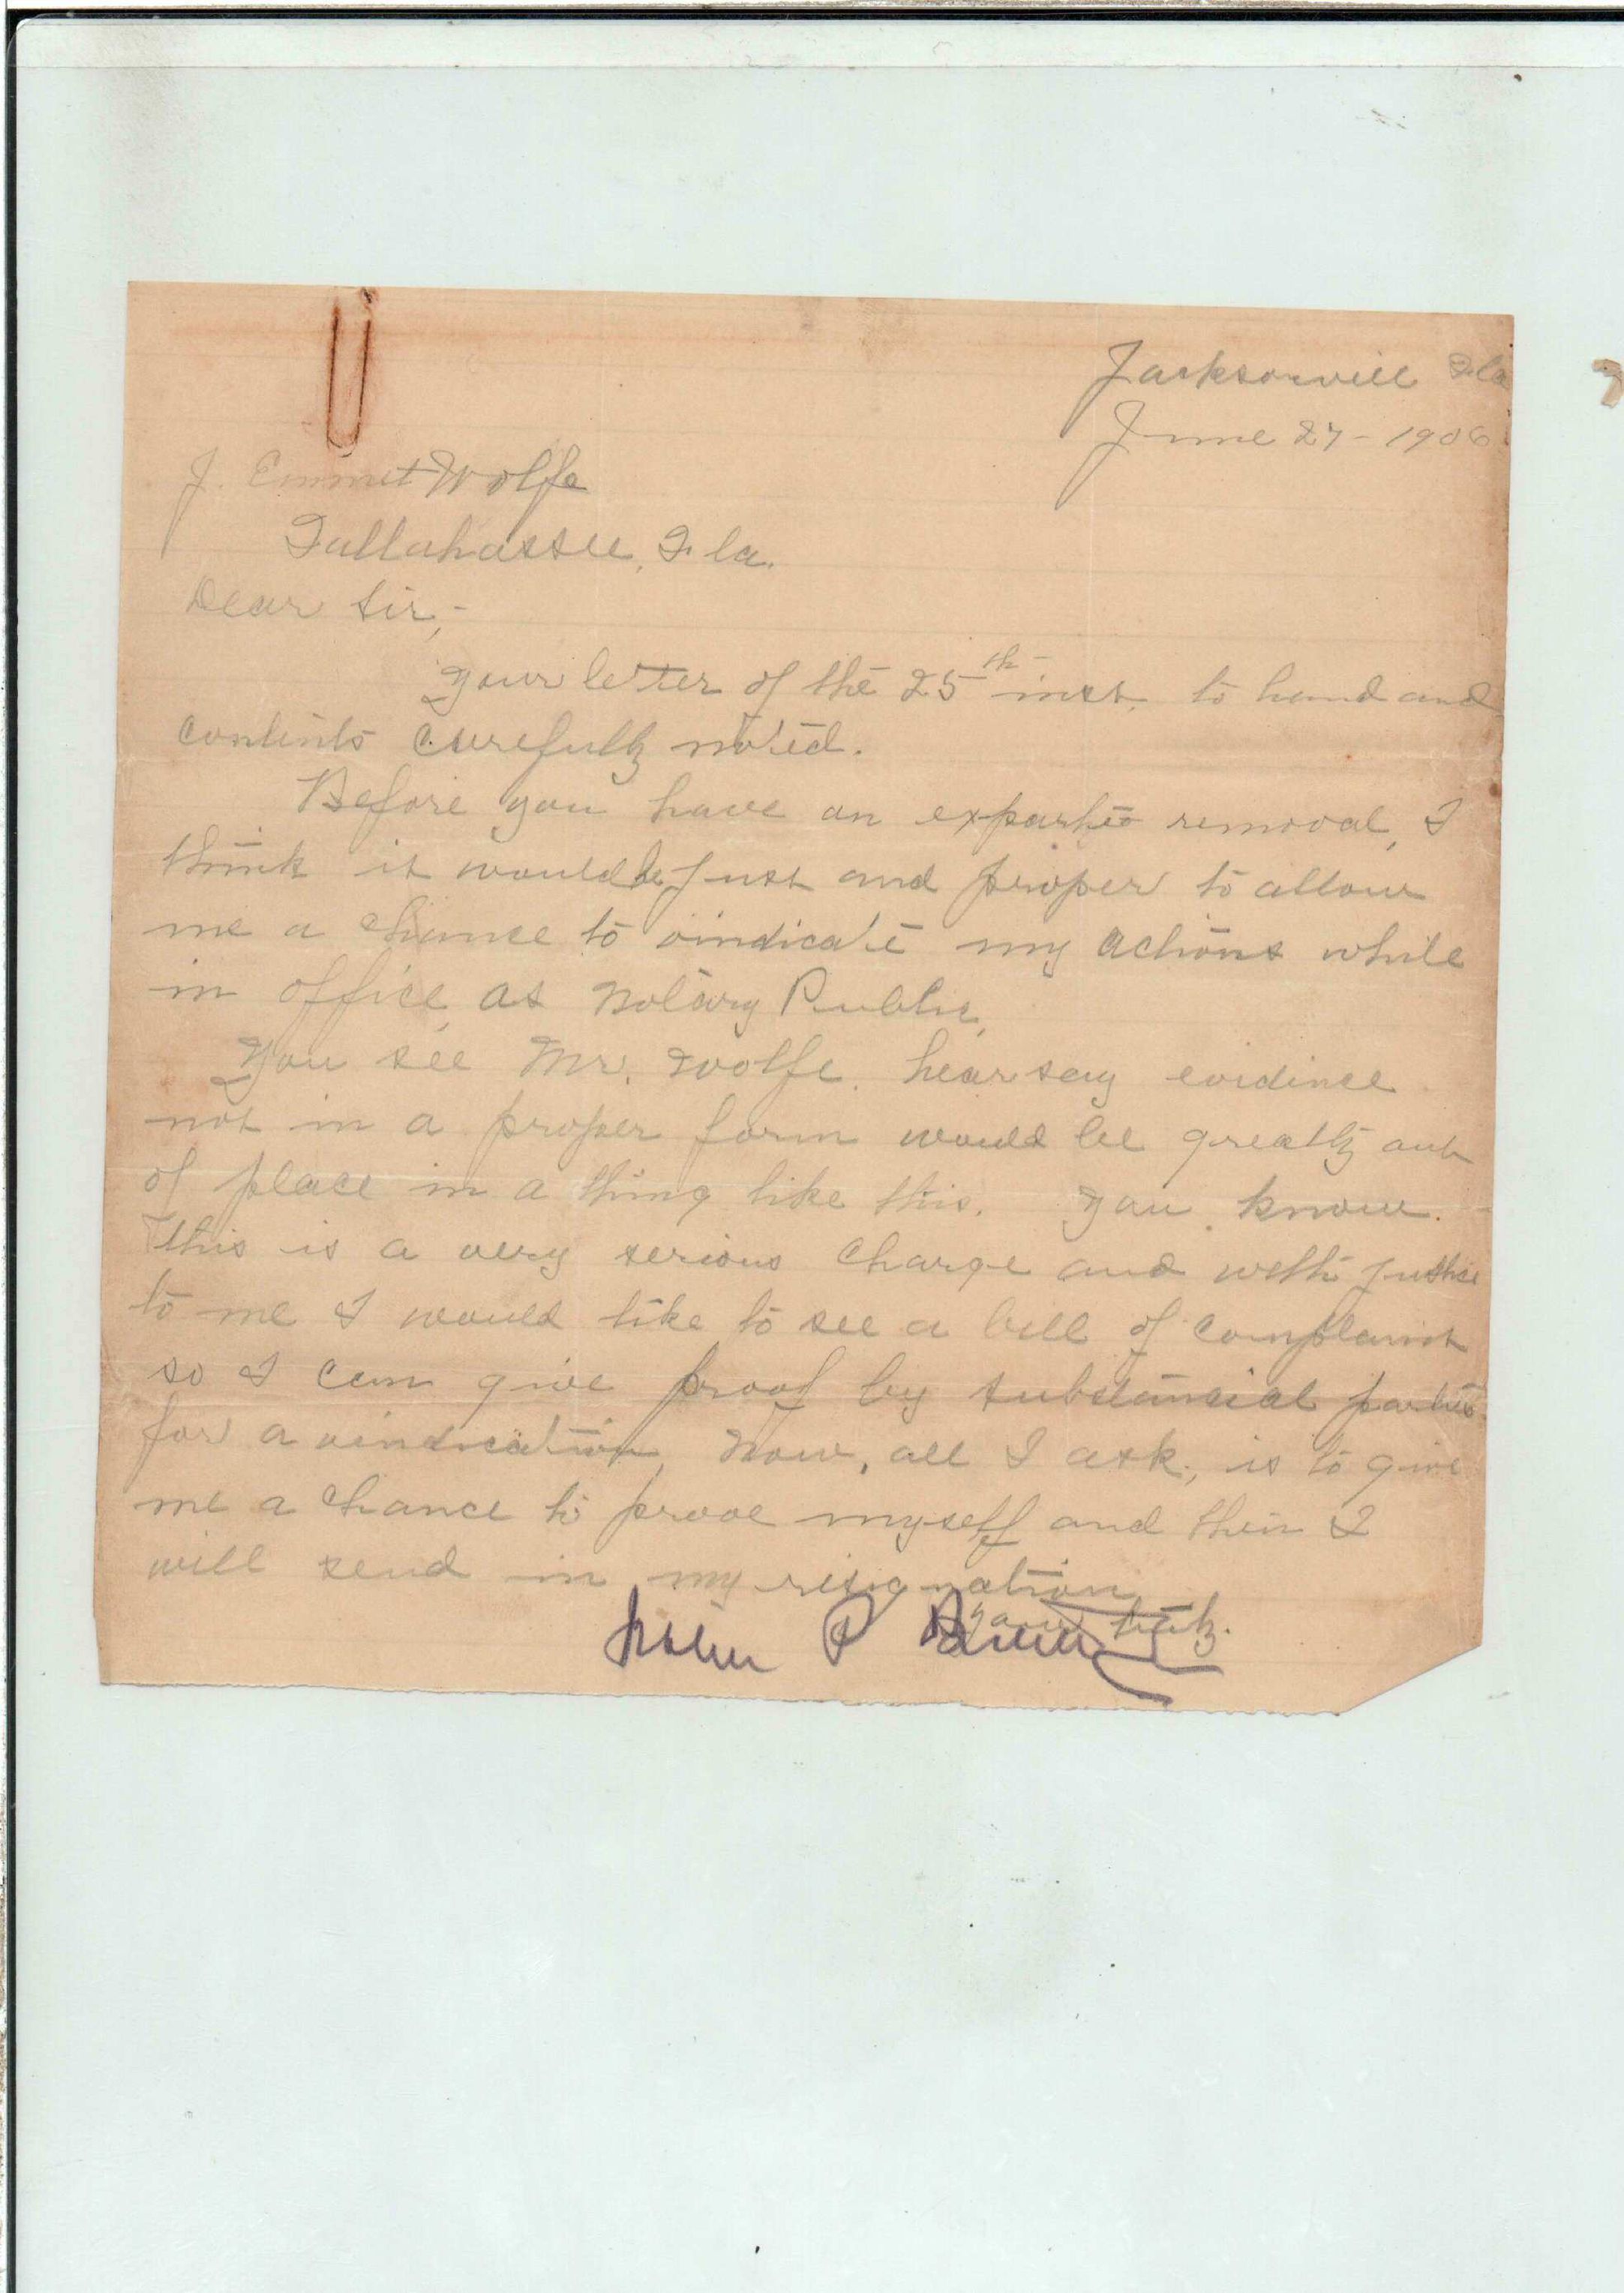 Jacksonvill Fla
June 27 - 1906
J. Emmet Wolfe
Tallahassee, Fla.
Dear Sir,-
Your letter of the 25th inst. to hand and
contents carefully noted.
Before you have an exparte removal, I
think it would be just and proper to allow
me a chance to vindicate my actions while
in office as Notary Public,
You see Mr. Wolfe, hearsay evidince
not in a proper form would be greatly out
of place in a thing like this. You know.
This is a very serious charge and with justice
to me I would like to see a bill of complaint
so I can give proof by substancial parties
for a vindication, Now, all I ask, is to give
me a chance to prove myself and then I
will send in my resignation
Yours truly.
P